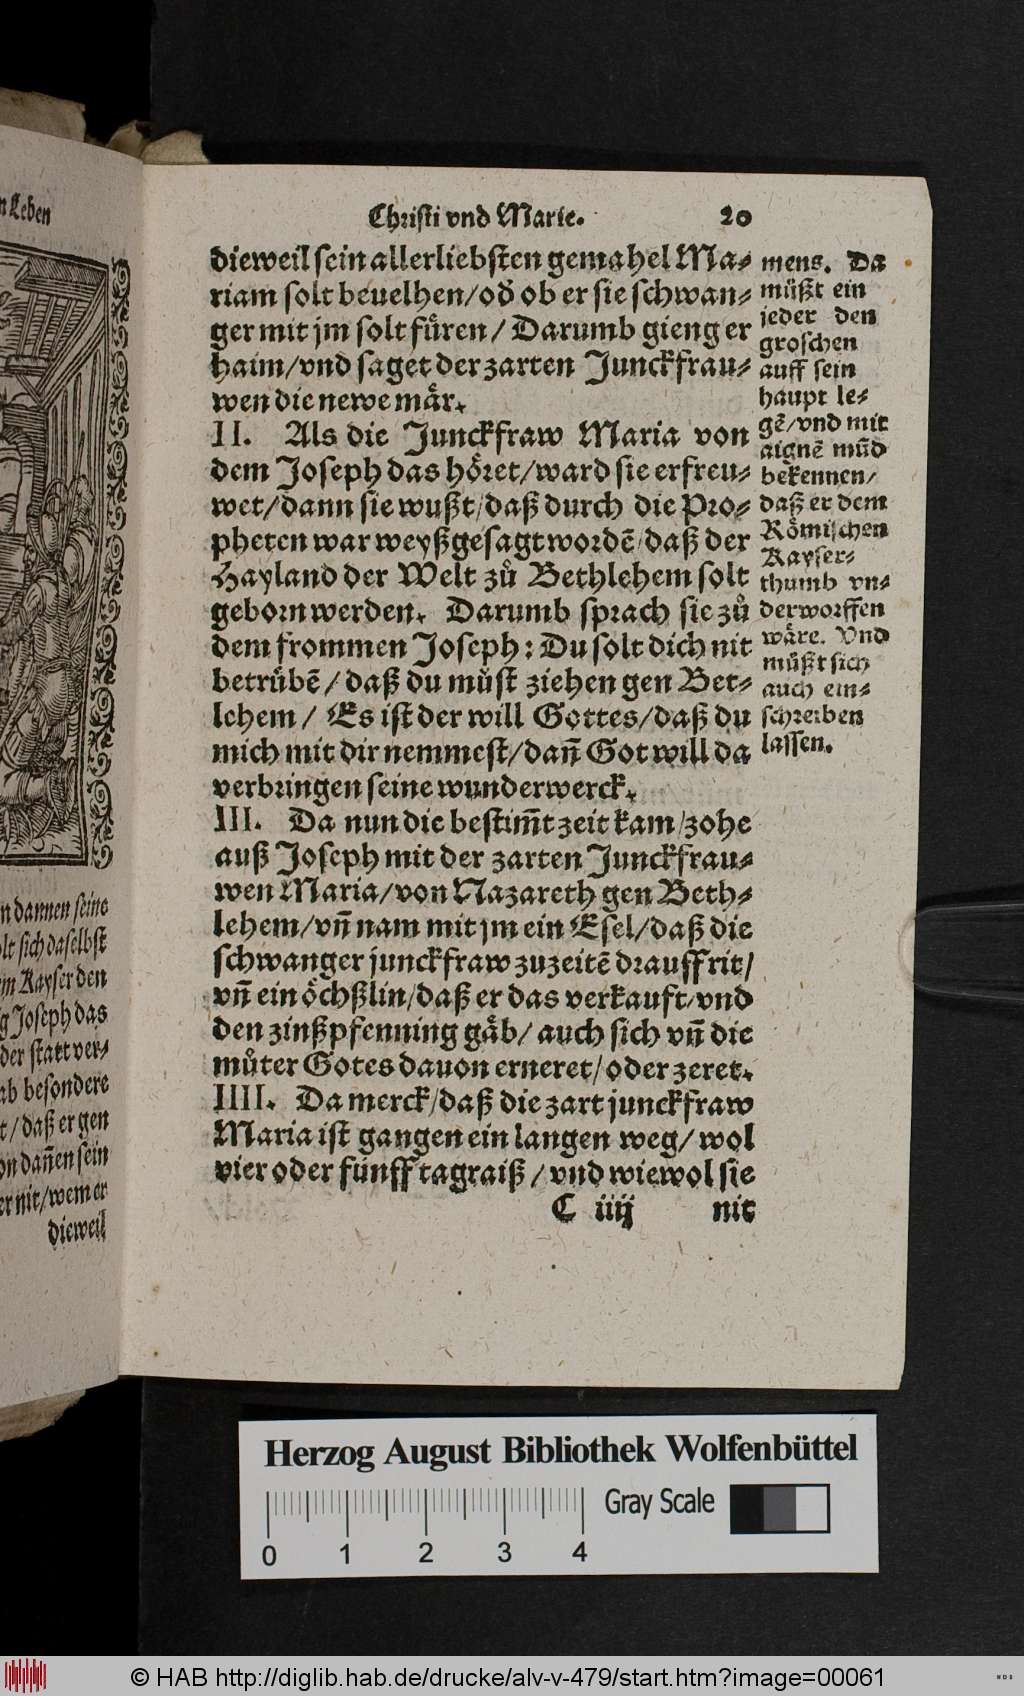 n Leben
n dannen seine
olt sich daselbst
em Kayser den
g Joseph das
der statt ver⸗
besondere
t/ daß er gen
on dan̄en sein
er nit/ wem er
dieweil
Christi vnd Marie. 20
dieweil sein allerliebsten gemahel Ma⸗
riam solt beuelhen/ od̄ ob er sie schwan⸗
ger mit jm solt fuͤren/ Darumb gieng er
haim/ vnd saget der zarten Junckfrau⸗
wen die newe maͤr.
II. Als die Junckfraw Maria von
dem Joseph das hoͤret/ ward sie erfreu⸗
wet/ dann sie wußt/ daß durch die Pro⸗
pheten war weyßgesagt wordē/ daß der
Hayland der Welt zuͦ Bethlehem solt
geborn werden. Darumb sprach sie zuͦ
dem frommen Joseph: Du solt dich nit
betruͤbē/ daß du muͦst ziehen gen Bet⸗
lehem/ Es ist der will Gottes/ daß du
mich mit dir nemmest/ dan̄ Got will da
verbringen seine wunderwerck.
III. Da nun die bestim̄t zeit kam/ zohe
auß Joseph mit der zarten Junckfrau⸗
wen Maria/ von Nazareth gen Beth⸗
lehem/ vn̄ nam mit jm ein Esel/ daß die
schwanger junckfraw zuzeitē drauff rit/
vn̄ ein oͤchßlin/ daß er das verkauft/ vnd
den zinßpfenning gaͤb/ auch sich vn̄ die
muͦter Gotes dauon erneret/ oder zeret.
IIII. Da merck/ daß die zart junckfraw
Maria ist gangen ein langen weg/ wol
vier oder fuͤnff tagraiß/ vnd wiewol sie
C iiij nit
mens. Da
muͤßt ein
jeder den
groschen
auff sein
haupt le⸗
gē/ vnd mit
aignē mūd
bekennen/
daß er dem
Roͤmischen
Kayser⸗
thumb vn⸗
derworffen
waͤre. Vnd
muͤßt sich
auch ein⸗
schreiben
lassen.
Herzog August Bibliothek Wolfenbüttel
Gray Scale
0 1 2 3 4
© HAB http://diglib.hab.de/drucke/alv-v-479/start.htm?image=00061